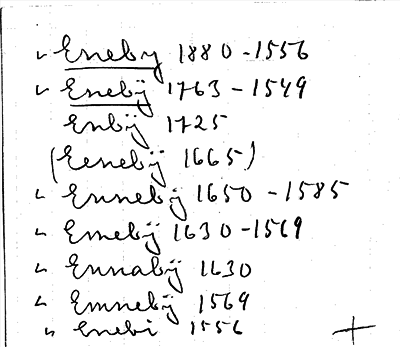 " Eneby 1880-1556
" Enebÿ 1763-1549
Enbÿ 1725
(Eenebÿ 1665)
" Ennebÿ 1650-1585
" Emebÿ 1630-1569
" Ennabÿ 1630
" Emnebÿ 1569
" Enebi 1556